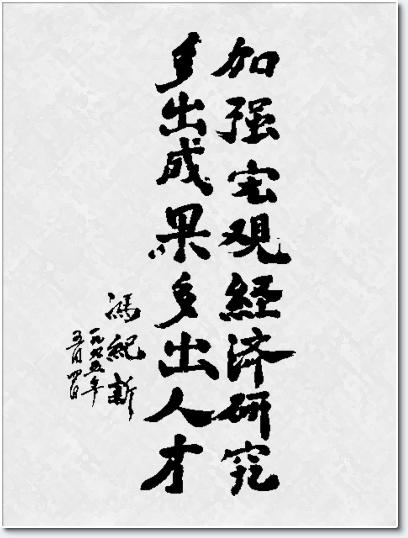 加强宏观经济研究
多出成果多出人才
冯纪新
一九九五年
五月四日